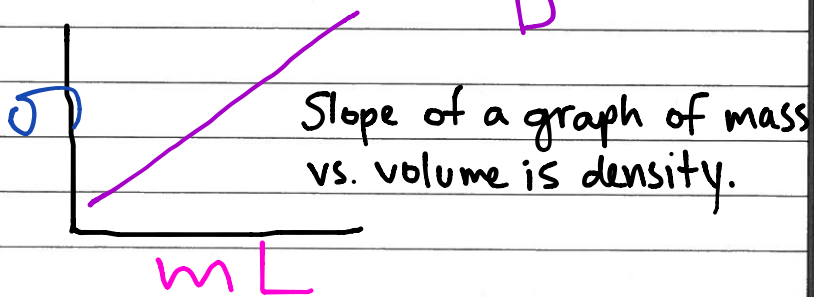 D
g
Slope of a graph of mass
vs. volume is density.
mL